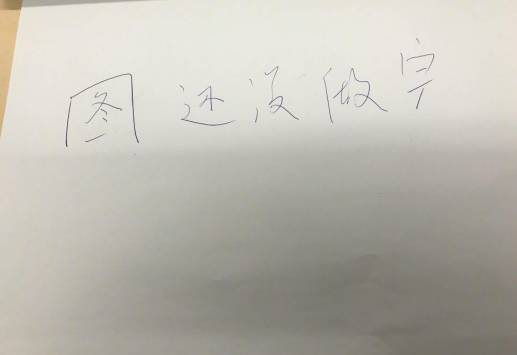 图还没做完